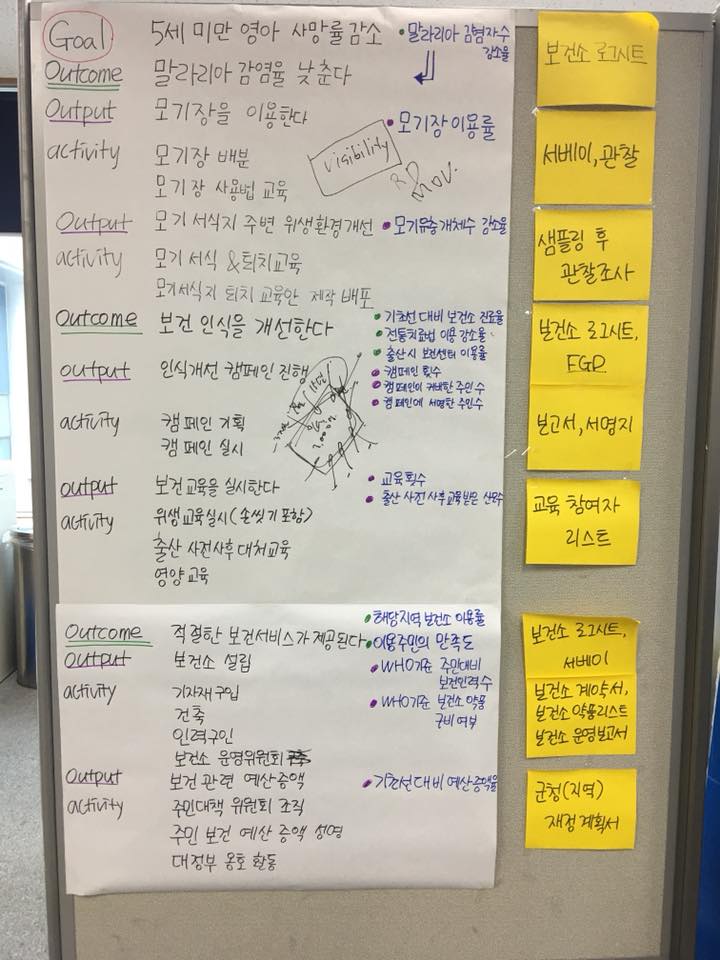 Goal 5세 미만 영아 사망률감소 •말라리아 감염자수
감소율
Outcome 말라리아 감염율 낮춘다
Output 모기장을 이용한다 •모기장 이용률
activity 모기장 배분
visibility
모기장 사용법 교육
Output 모기 서식지 주변 위생환경개선 •모기유충개체수 감소율
activity 모기 서식 & 퇴치교육
모기서식지 퇴치 교육안 제작 배포
Outcome 보건 인식을 개선한다 •기초선 대비 보건소 진료율
•전통치료법 이용 감소율
•출산시 보건센터 이용률
output 인식개선 캠페인 진행 •캠페인 횟수
•캠페인이 커버한 주민 수
•캠페인에 서명한 주민수
activity 캠페인 기획
캠페인 실시
output 보건교육을 실시한다 •교육횟수
•출산 사전 사후교육받은 산모수
activity 위생교육실시(손씻기 포함)
출산 사전사후 대처교육
영양교육
Outcome 적절한 보건서비스가 제공된다 •해당지역 보건소 이용률
•이용주민의 만족도
Output 보건소 설립 •WHO기준 주민대비
보건인력수
activity 기자재구입 •WHO기준 보건소 약품
구비 여부
건축
인력구인
보건소 운영위원회
Output 보건 관련 예산증액 •기초선대비 예산증액율
activity 주민대책 위원회 조직
주민 보건 예산 증액 성명
대정부 옹호 활동
보건소 로그시트
서베이, 관찰
샘플링 후
관찰조사
보건소 로그시트,
FGD
보고서, 서명지
교육 참여자
리스트
보건소 로그시트,
서베이
보건소 계약서,
보건소 약품리스트
보건소 운영보고서
군청(지역)
재정계획서